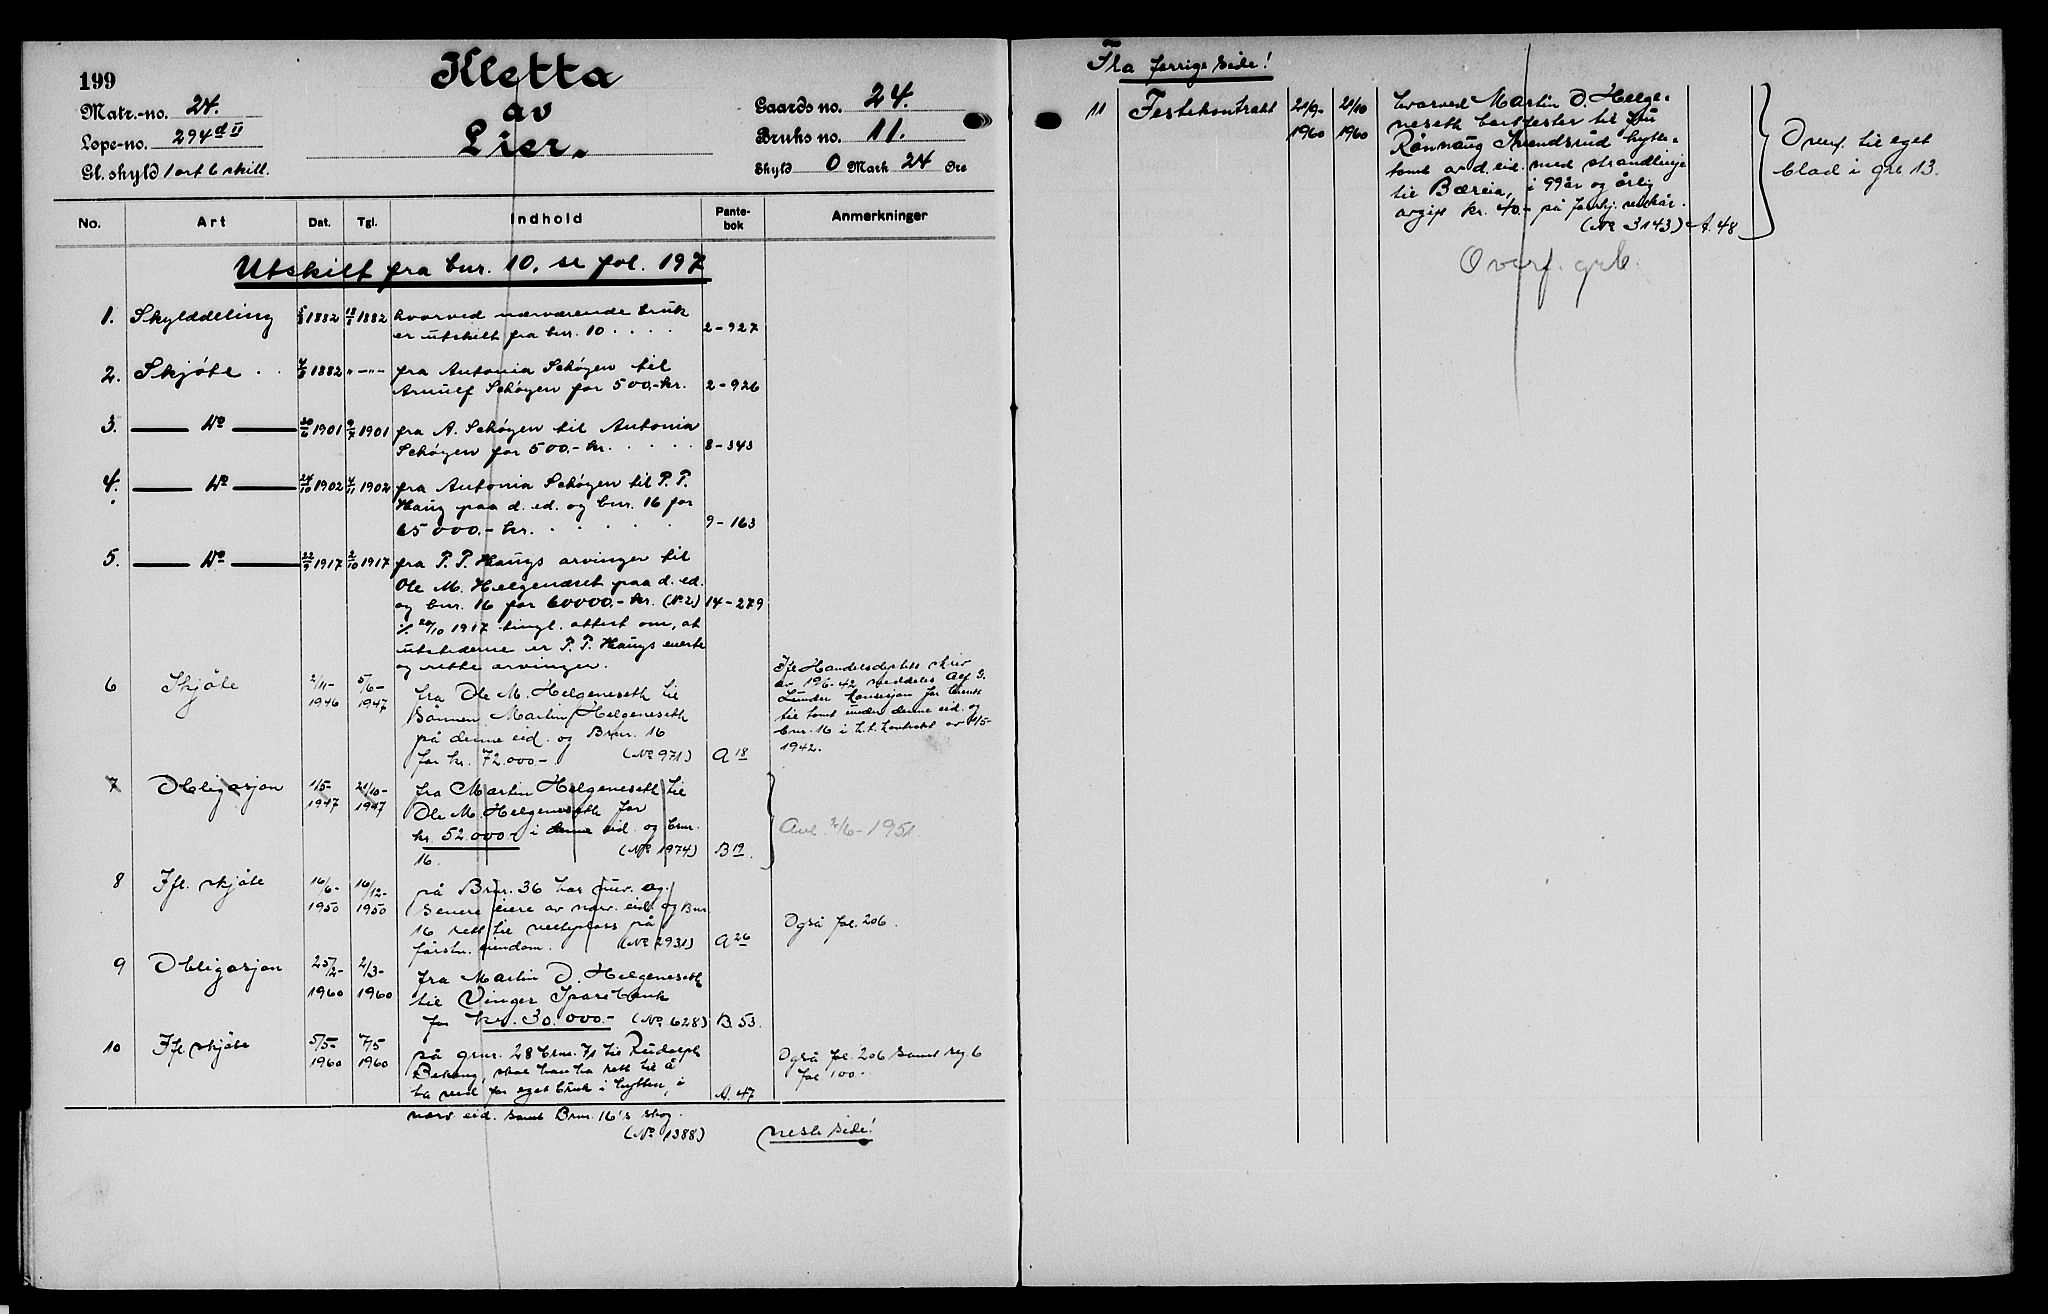 199
Kletta
av
Lier.
Matr.-no. 24.
Løpe-no. 294 d II
Gl. skyld 1 ort 6 skill.
Gaards no. 24.
Bruks no. 11.
Skyld 0 Mark 24 Øre
No. Art Dat. Tgl. Indhold Pante-bok Anmerkninger
Utskilt fra bnr. 10. se fol. 197
1. Skylddeling 1882 1882 hvorved nærværende bruk
er utskilt fra bnr. 10 . . . . 2-927
2. Skjøte . . 1882 "—"— fra Antonia Schøyen til
Arnulf Schøyen for 500,- kr. 2-926
3. — Do — 20/6 1901 9/7 1901 fra A. Schøyen til Antonia
Schøyen for 500.- kr. . . . . . 8-343
4. — Do — 24/10 1902 4/11 1902 fra Antonia Schøyen til P. P.
Haug paa d. ed. og bnr. 16 for
65000.- kr. . . . . . 9-163
5. — Do — 22/9 1917 2/10 1917 fra P. P. Haugs arvinger til
Ole M. Helgenæset paa d. ed.
og bnr. 16 for 60000,- kr. (No 2) 14-279
./. 20/10 1917 tingl. attest om, at
utstederne er P. P. Haugs eneste
og rette arvinger.
6 Skjøte 2/11- 1946 5/6- 1947 fra Ole M. Helgeneseth til
Sønnen Martin Helgeneseth
på denne eid. og Brnr. 16
for kr. 72.000- (No 971) A 18
Ifl Handelsdeptets skriv
av 19/6-42 meddeles Alf G.
Lunder Konsesjon for
til tomt under denne eid. og
bnr. 16 i h.t. kontrakt av 1/5-
1942.
7 Obligasjon 1/5- 1947 21/10- 1947 fra Martin Helgeneseth til
Ole M. Helgeneseth for
kr. 52.000.- i denne eid. og bnr.
16. (No 1974) B 19
Avl. 2/6-1951.
8 Ifl. skjøte 16/6- 1950 16/12- 1950 på Brnr. 36 har nuv. og
senere eiere av narv. eid. og Bnr
16 rett til på
førstn. eiendom. (No 2931) A 26
Også fol. 206.
9 Obligasjon 25/2- 1960 2/3- 1960 fra Martin O. Helgeneseth
til Vinger Sparebank
for kr. 30.000.- (No 628) B. 53.
10 Ifl skjøte 5/5- 1960 7/5 1960 på grnr. 28 brnr. 71 til Rudolph
skal han ha rett til å
ta ved for eget bruk i hytten, i A. 47
narv eid. samt Brnr. 16's skog.
(No 1388)
Også fol. 206 samt reg. 6
fol 100.-
neste side!
Fra forrige side!
11 Festekontrakt 21/9- 1960 21/10 1960 hvorved Martin O. Helge-
neseth bortfester til fru
Rønnaug Svendsrud hytte-
tomt av d. eid. med strandlinje
til Bæreia, i 99 år og årlig
avgift kr. 40.- på forskj. vilkår.
(No 3143) A. 48
Overf. til eget
blad i gre 13.
Overf. grb.